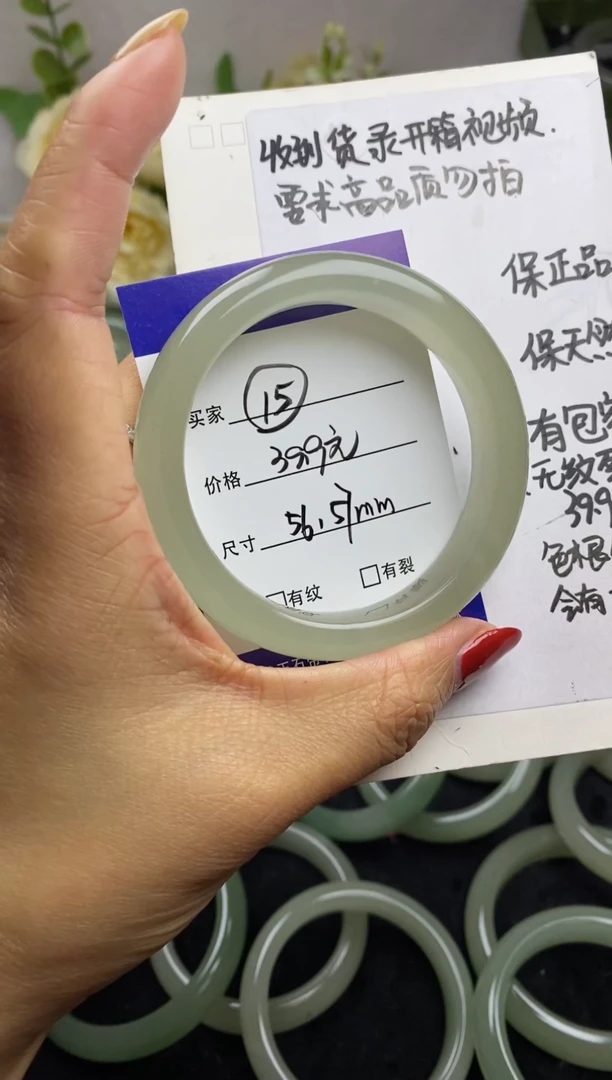 收到货录开箱视频.
需求高品质勿拍
保正品
保天然
买家 15
有包
价格 399元
无纹
39.9
尺寸 56.5mm
□有纹 □有裂
色根
会有